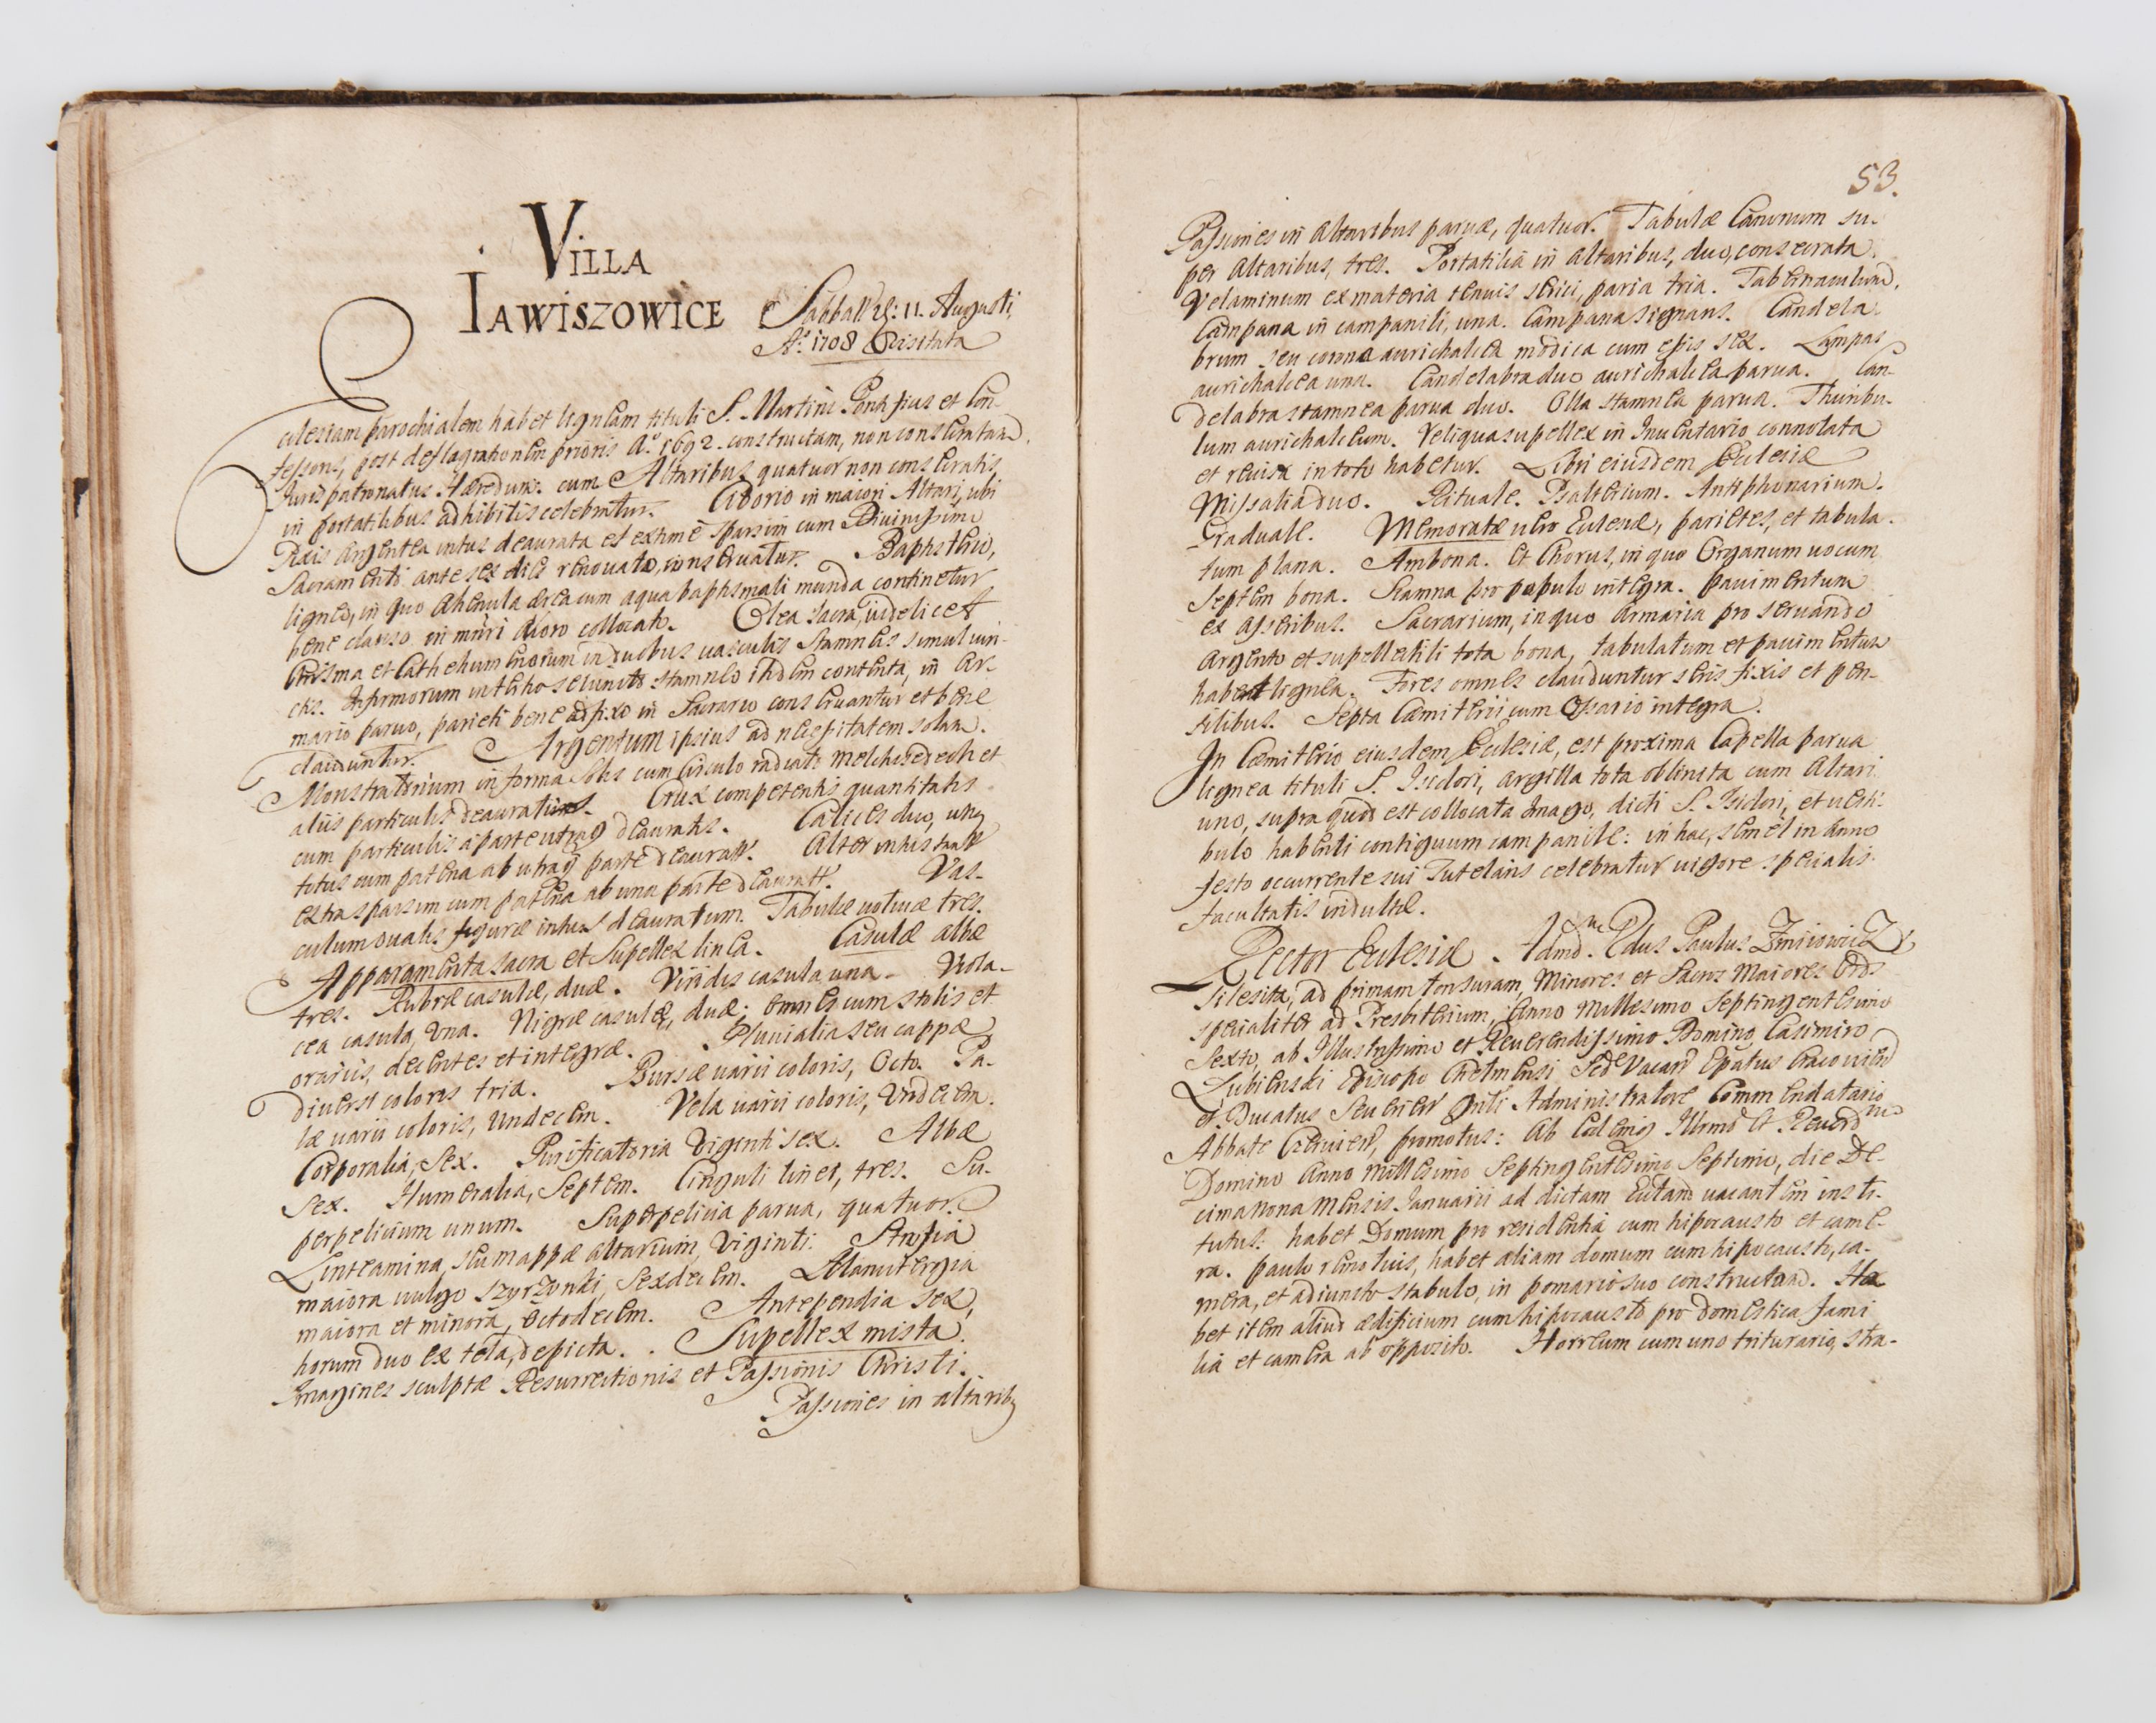 VILLA
IAWISZOWICE
Sabbati 11. Augusti
Aº 1708 Visitata
Ecclesiam parochialem habet ligneam tituli S. Martini Pontificis et Con-
fessoris, post deflagrationem prioris Aº 1692 constructam, non consecratam.
Juris patronatus Hæredum. cum Altaribus quatuor non consecratis,
in portatilibus adhibitis celebratur. Ciborio in maiori Altari, ubi
Pixis argentea intus deaurata et extime sparsim cum Divinissimo
Sacramento ante sex dies renovato, conservatur. Baptisterio,
ligneo, in quo Ahenula ærea cum aqua baptismali munda continetur
bene clauso in muri choro collocato. Olea sacra, videlicet
Chrisma et Cathehumenorum in duobus vasculis stamneis simul iun-
ctis. Infirmorum stamneo itidem contenta, in Ar-
mario parvo, parieti bene adfixo in Sacrario conservantur et bene
clauduntur. Argentum ipsius ad necessitatem solam.
Monstratorium in forma Solis cum Circulo radiato Melchisedech et
aliis particulis deauratis. Crux competentis quantitatis
cum particulis a parte utraq deauratis. Calices duo, unq
totus cum patena ab utraq parte deauratq. Alter intus tantq
extra sparsim cum patena ab una parte deauratq. Vas-
culum ovalis figuræ intus deauratum. Tabulæ votivæ tres.
Apparamenta sacra et Supellex linea. Casulæ albæ
tres. Rubræ casulæ, duæ. Viridis casula una. Viola-
cea casula, Una. Nigræ casulæ, duæ; omnes cum stolis et
orariis, decentes et integræ. Pluvialia seu cappæ
diversi coloris tria. Bursæ varii coloris, Octo. Pa-
læ varii coloris, Undecem. Vela varii coloris, Undecem.
Corporalia, Sex. Purificatoria Viginti sex. Albæ
Sex. Humeralia, Septem. Cinguli linei, tres. Su-
perpelicium unum. Superpelicia parva, quatuor.
Linteamina, seu mappæ altarium, Viginti. Strofia
maiora vulgo Szyrzynki, Sexdecem. Manutergia
maiora et minora, Octodecem. Antependia Sex,
horum duo ex tela, depicta. Supellex mista.
Imagines sculptæ Resurrectionis et Passionis Christi.
Passiones in altaribq
53.
Passiones in Altaribus parvæ, quatuor. Tabulæ Canonum su-
per Altaribus, tres. Portatilia in Altaribus, duo, consecrata.
Velaminum ex materia tenuis serici, paria tria. Tabernaculum.
Campana in campanili, una. Campana signans. Candela-
brum seu corona aurichalcea modica cum epis sex. Lampas
aurichalcea una. Candelabra duo aurichalcea parva. Can-
delabra stamnea parva duo. Olla stamnea parva. Thuribu-
lum aurichalceum. Reliqua supellex in Inventario connotata
et revisa in toto habetur. Libri eiusdem Ecclesiæ
Missalia duo. Rituale. Psalterium. Antiphonarium.
Graduale. Memoratæ vero Ecclesiæ, parietes, et tabula-
tum plana. Ambona. Et Chorus, in quo Organum vocum
septem bona. Scamna pro populo integra. pavimentum
ex asseribus. Sacrarium, in quo Armaria pro servando
Argento et supellectili tota bona, tabulatum et pavimentum
habent lignea. Fores omnes clauduntur seris fixis et pen-
silibus. Septa Cæmiterii cum Ossario integra.
In Cæmiterio eiusdem Ecclesiæ, est proxima Capella parva
lignea tituli S. Isidori, argilla tota oblinita cum Altari
uno, supra quod est collocata Imago, dicti S. Isidori, et vesti-
bulo habenti contiguum campanile: in hac, semel in Anno
festo occurrente sui Tutelaris celebratur vigore specialis
facultatis indultæ.
Rector Ecclesiæ. Admd. Rdus Paulus
Silesita, ad primam tonsuram, Minores et Sacros Maiores Ords
specialiter ad Presbiterium, Anno Millesimo Septingentesimo
Sexto, ab Illustrissimo et Reverendissimo Domino, Casimiro
Lubienski Episcopo Chelmensi Sede Vacan Epatus Cracovien
et Ducatus Severien Gnli Administratore Commendatario
Abbate promotus: Ab Eodemq Illrmo et Reverdmo
Domino Anno Millesimo Septingentesimo Septimo, die De-
cima nona Mensis Januarii ad dictam Ecclam vacantem insti-
tutus. habet Domum pro residentia cum hipocausto et came-
ra. paulo remotius, habet aliam domum cum hipocausto, ca-
mera, et adiuncto stabulo, in pomario suo constructam. Ha-
bet item aliud ædificium cum hipocausto pro domestica fami-
lia et camera ab opposito. Horreum cum uno triturario, stra-